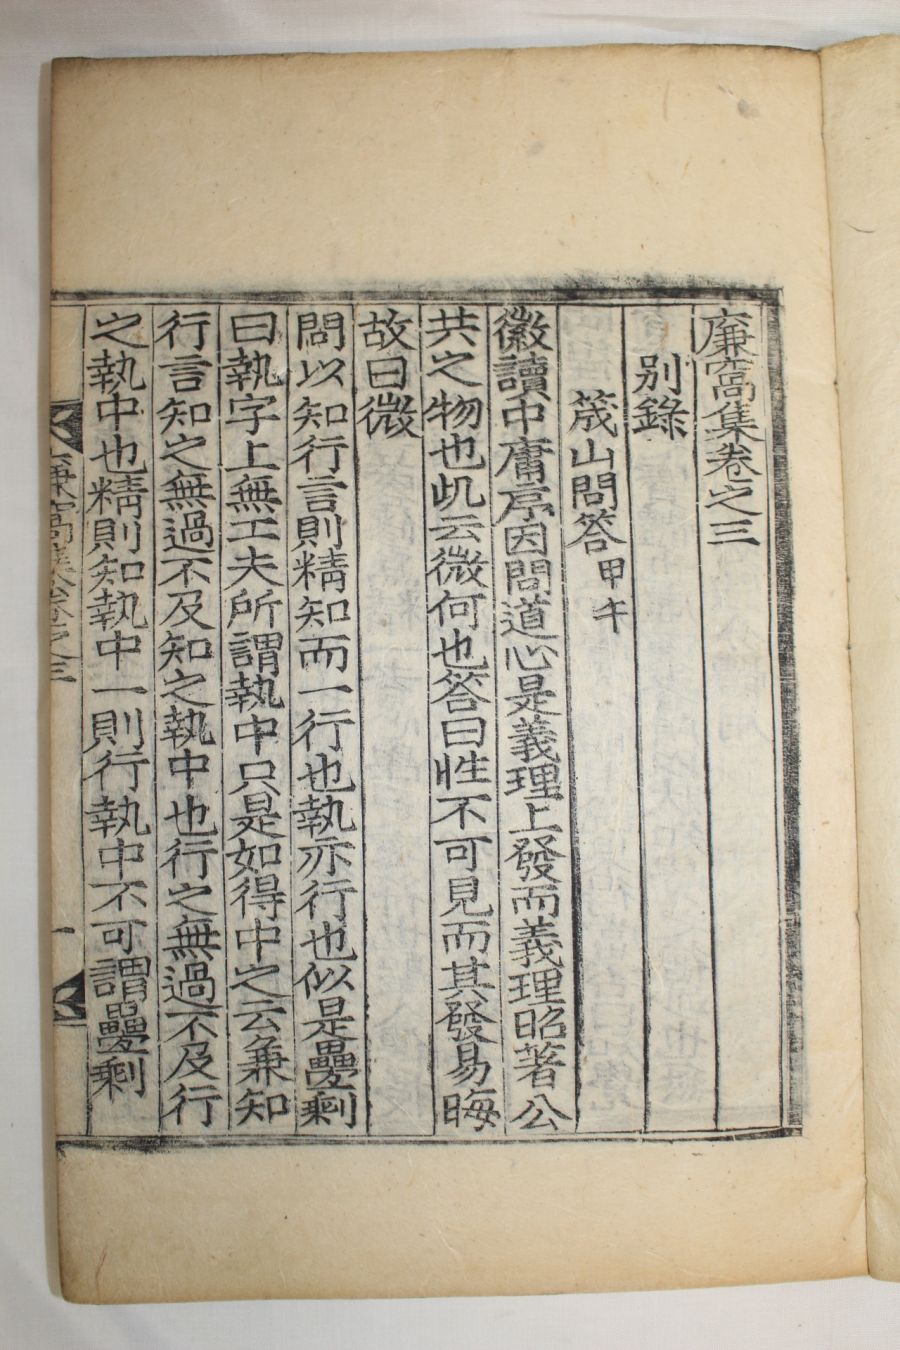 廉窩集卷之三
別錄
筬山問答 甲午
徽讀中庸序因問道心是義理上發而義理昭著公
共之物也此云微何也答曰性不可見而其發易晦
故曰微
問以知行言則精知而一行也執亦行也似是疊剩
曰執字上無工夫所謂執中只是如得中之云兼知
行言知之無過不及知之執中也行之無過不及行
之執中也精則知執中一則行執中不可謂疊剩
廉窩集卷之三
一